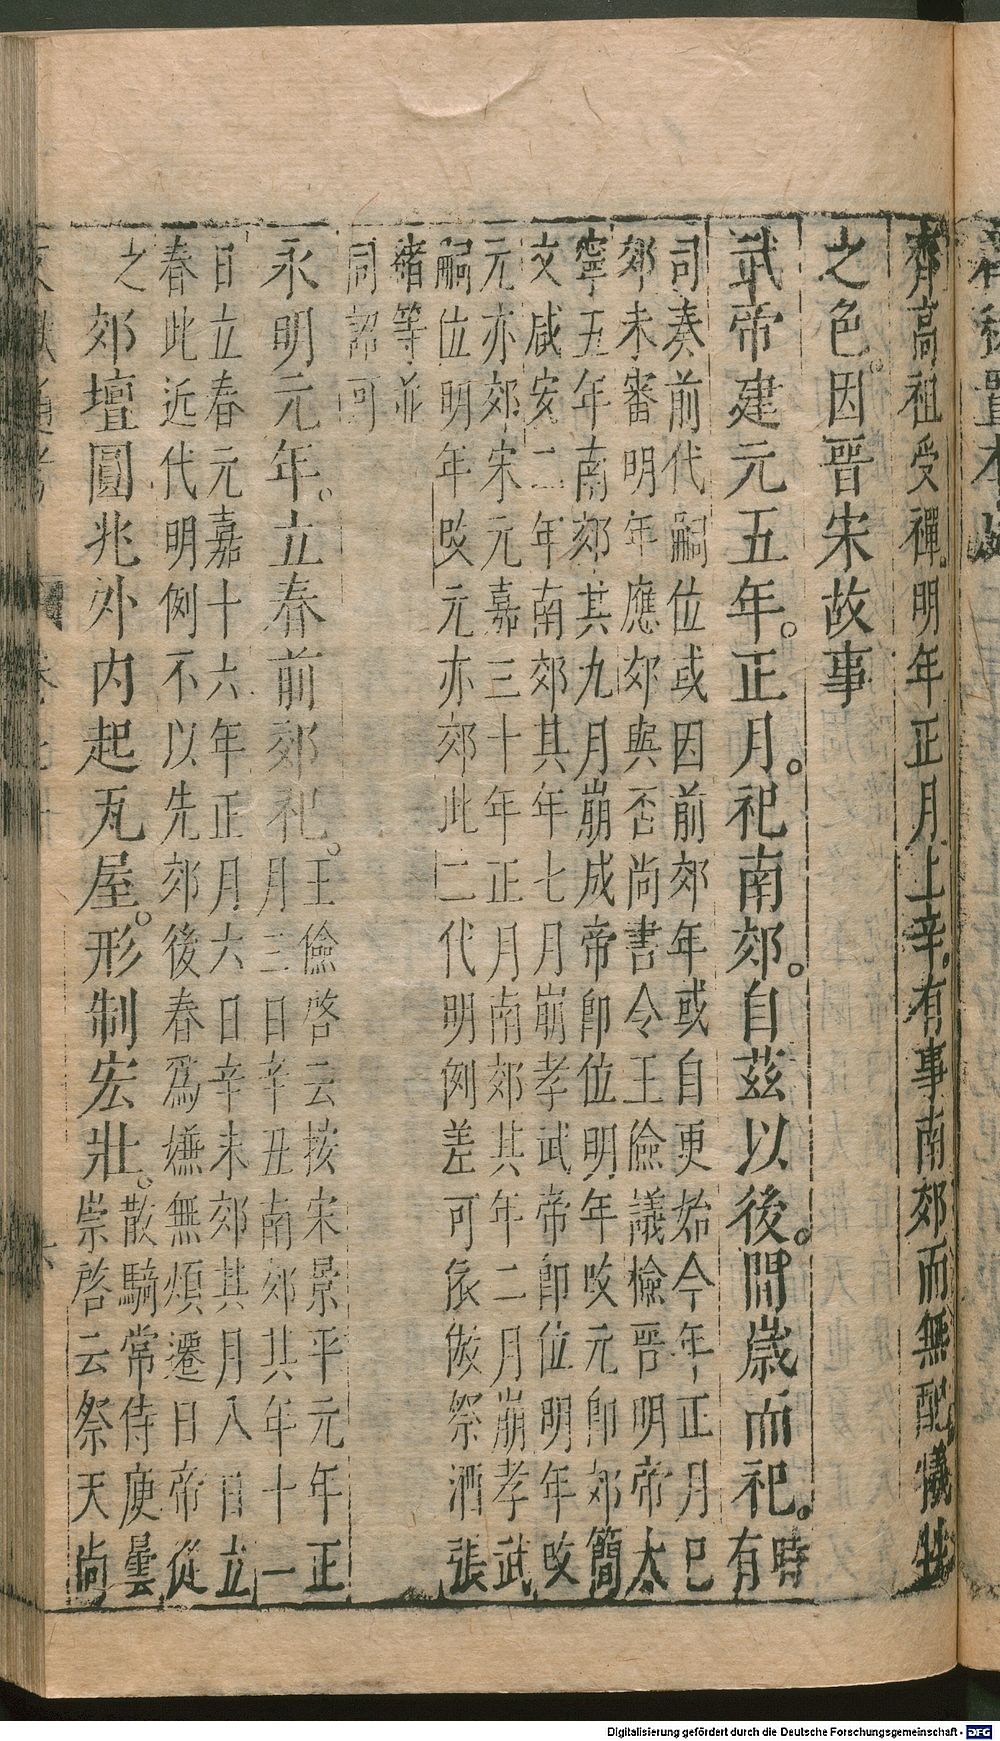 齊高祖受禪。明年正月上辛。有事南郊而無配犧牲
之色。因晉宋故事
武帝建元五年。正月。祀南郊。自茲以後。間歲而祀。時有
司奏前代嗣位或因前郊年或自更始今年正月已
郊未審明年應郊與否尚書令王儉議檢晉明帝太
寧五年南郊其九月崩成帝即位明年改元即郊簡
文咸安二年南郊其年七月崩孝武帝即位明年改
元亦郊宋元嘉三十年正月南郊其年二月崩孝武
嗣位明年改元亦郊此二代明例差可依倣祭酒張
緒等並
同詔可
永明元年。立春前郊祀。王儉啓云按宋景平元年正
月三日辛丑南郊其年十一
日立春元嘉十六年正月六日辛未郊其月八日立
春此近代明例不以先郊後春爲嫌無煩遷日帝從
之
郊壇圓兆外內起瓦屋。形制宏壯。散騎常侍庾曇
崇啓云祭天尚
Digitalisierung gefördert durch die Deutsche Forschungsgemeinschaft - DFG